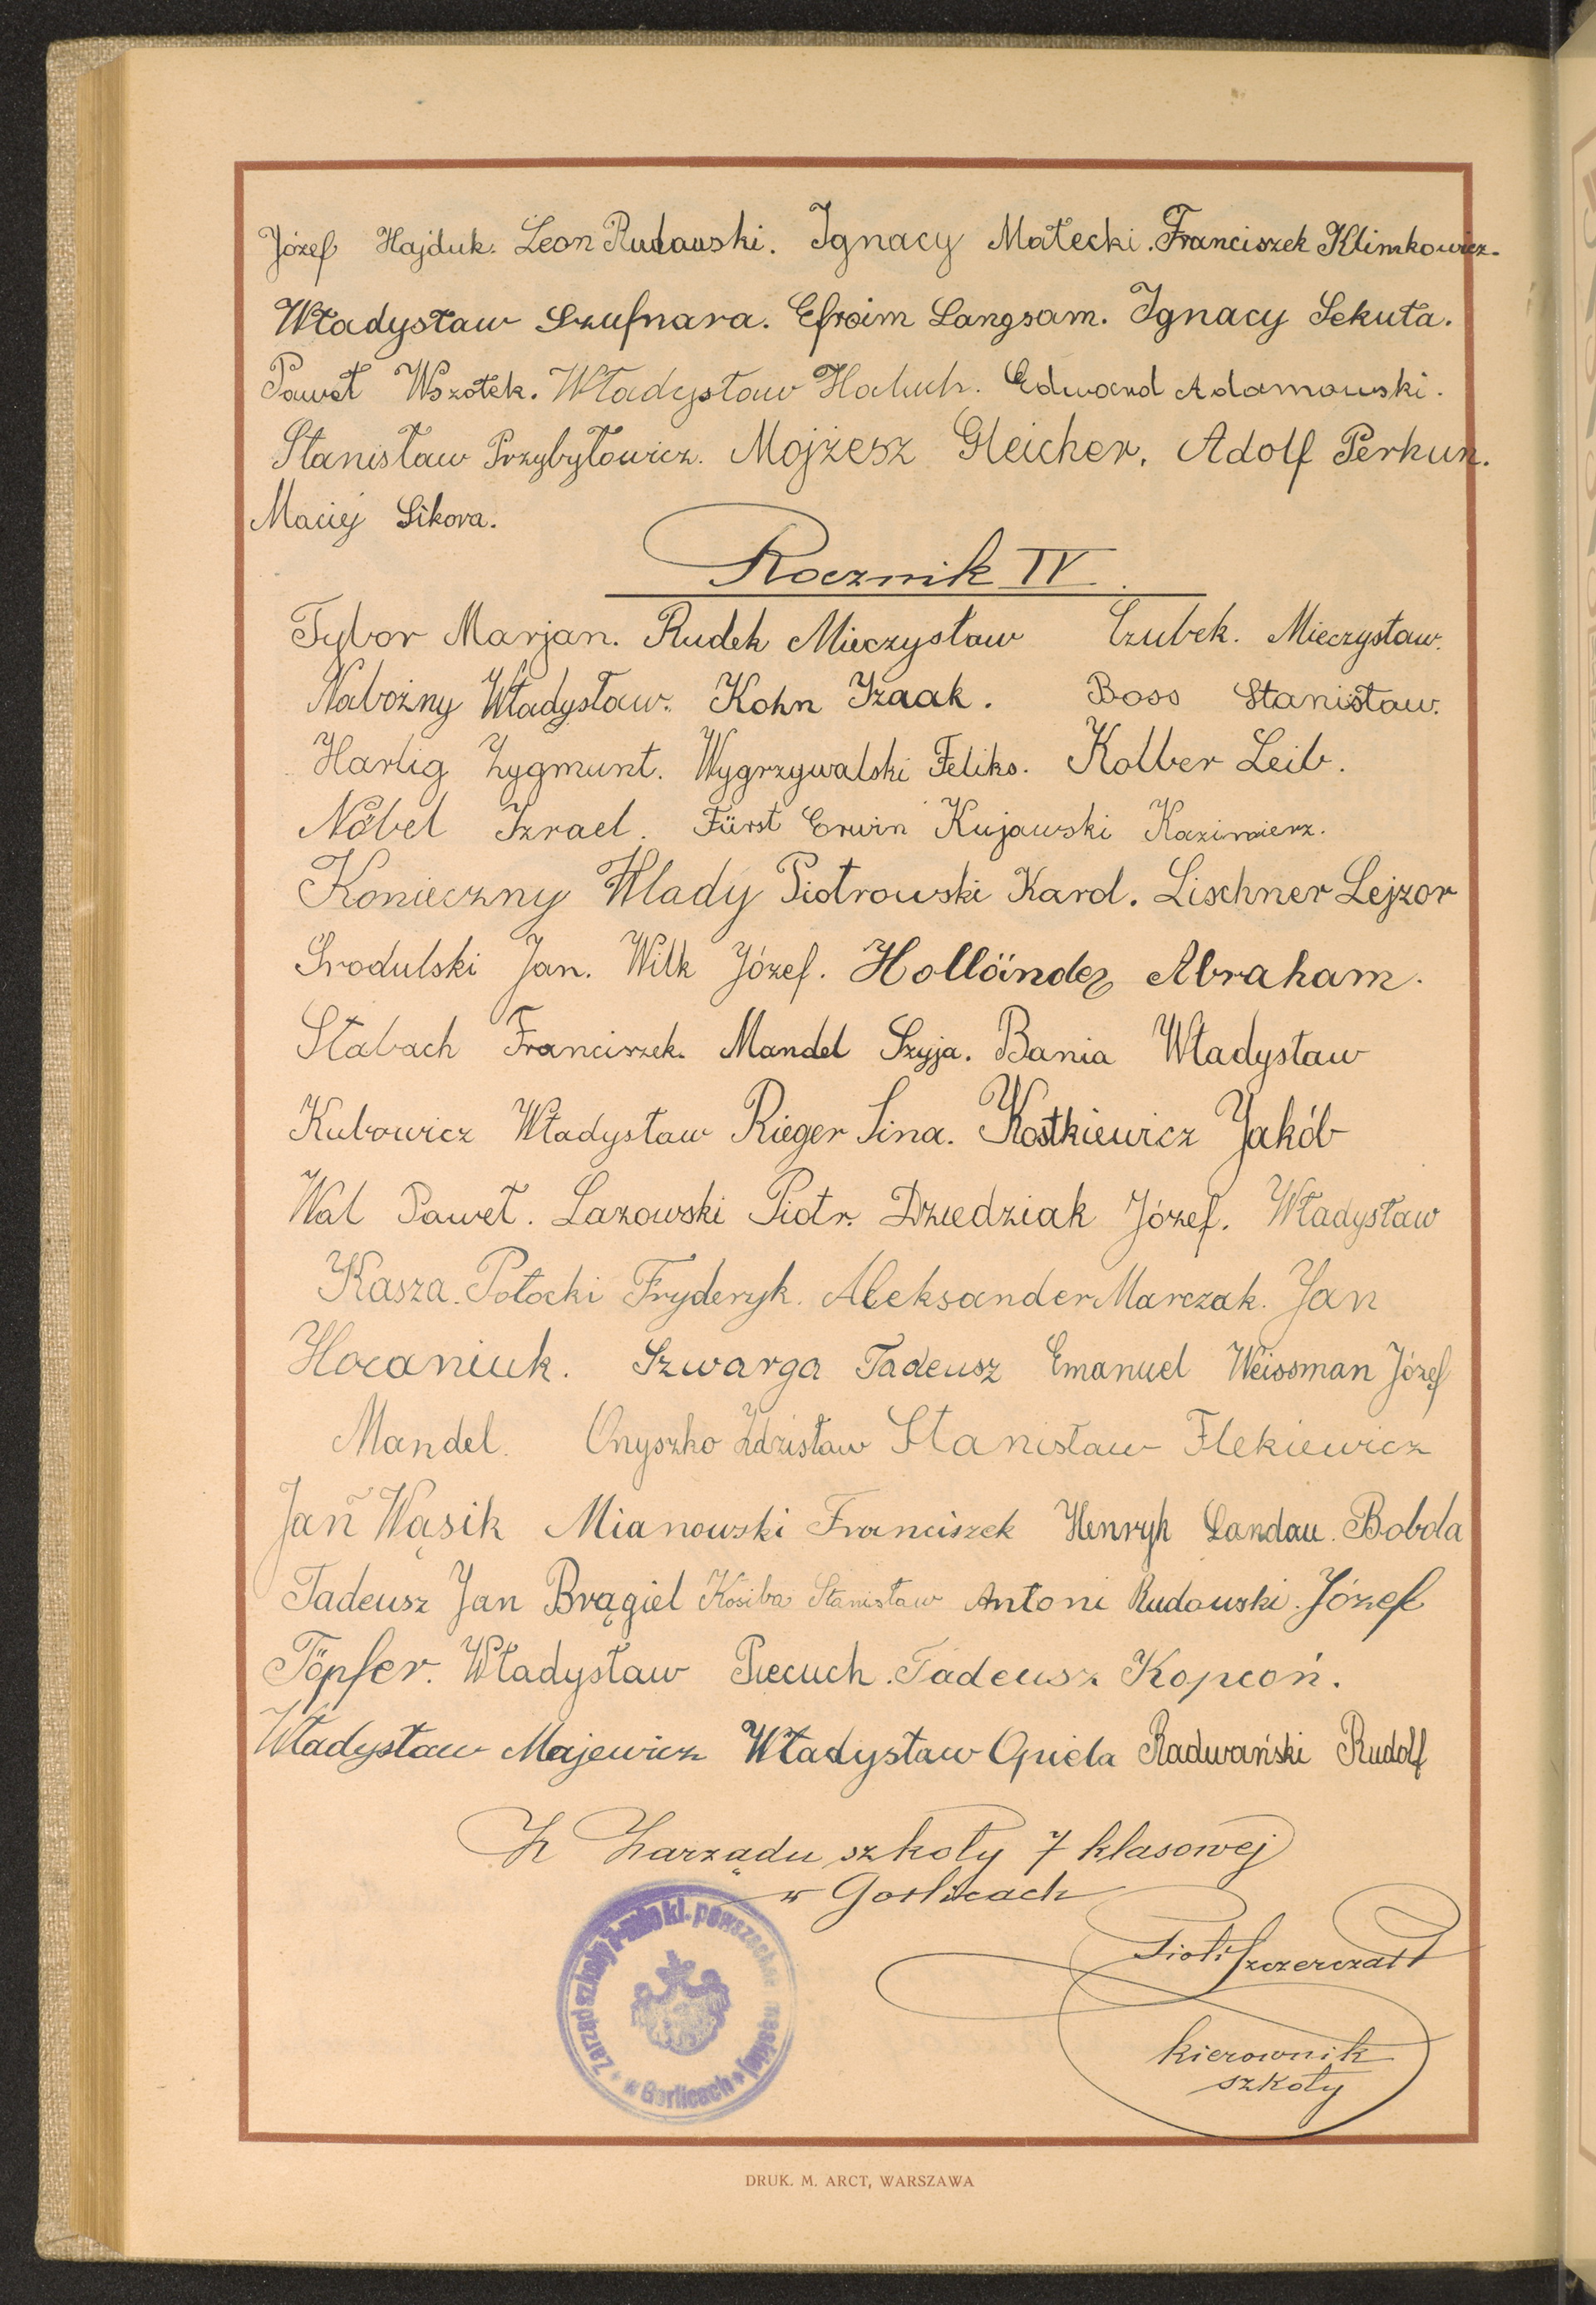 Józef Hajduk. Leon Rudawski. Ignacy Małecki. Franciszek Klimkowicz.
Władysław Szufnara. Efroim Langsam. Ignacy Sekuła.
Paweł Wszołek. Władysław Haluch. Edward Adamowski.
Stanisław Przybyłowicz. Mojżesz Gleicher, Adolf Perkun.
Maciej Sikora.
Rocznik IV
Tybor Marjan. Rudek Mieczysław Czubek. Mieczysław.
Nabożny Władysław. Kohn Izaak. Boss Stanisław.
Harlig Zygmunt. Wygrzywalski Feliks. Kolber Leib.
Nöbel Izrael. Fürst Erwin Kujawski Kazimierz.
Konieczny Wlady Piotrowski Karol. Lischner Lejzor
Srodulski Jan. Wilk Józef. Holländer Abraham.
Słabach Franciszek. Mandel Szyja. Bania Władysław
Kubowicz Władysław Rieger Sina. Kostkiewicz Jakób
Wal Paweł. Lazowski Piotr. Dziedziak Józef. Władysław
Kasza. Potocki Fryderyk. Aleksander Marczak. Jan
Hocaniuk. Szwarga Tadeusz Emanuel Weissman Józef
Mandel. Onyszko Zdzisław Stanisław Flekiewicz
Jan Wąsik Mianowski Franciszek Henryk Landau. Bobola
Tadeusz Jan Brągiel Kosiba Stanisław Antoni Rudawski. Józef
Töpfer. Władysław Piecuch. Tadeusz Kopcoń.
Władysław Majewicz Władysław Opiela Radwański Rudolf
Z Zarządu szkoły 7 klasowej
w Gorlicach
Zarząd szkoły kl. powszechn męskiej w Gorlicach
Piotr
kierownik
szkoły
DRUK. M. ARCT, WARSZAWA